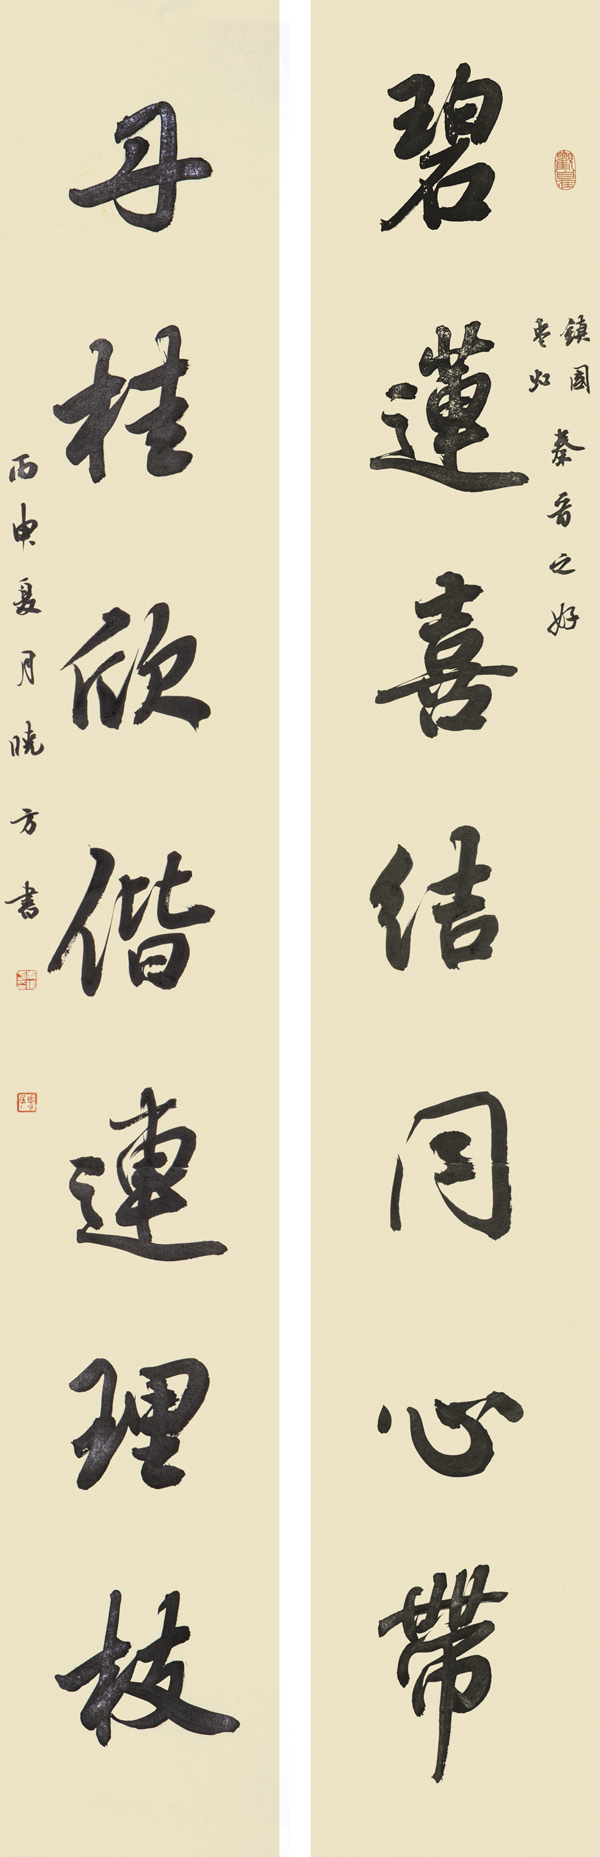 鎮國
秦晋之好
碧蓮喜結同心帶
丹桂欣偕連理枝
丙申夏月晓方書